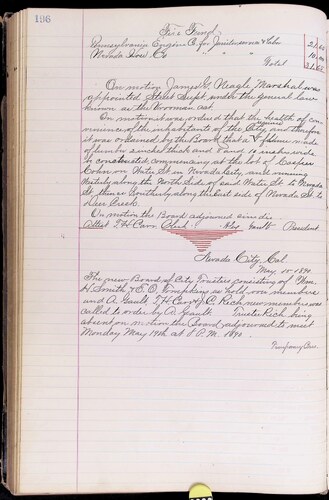 196
Fire Fund
Pennsylvania Engine Co for Janitor service & Labor 21.65
Nevada Hose Co " " 10.00
Total 31.65
On motion James G. Neagle Marshal was
appointed Street Supt. under the general law
known as the Vrooman act.
On motion it was ordered that the health of con-
venience of the inhabitants of the City require and therefore
it was ordained by the Board that a of planks made
of lumber inches thick and and inches wide
be constructed, commencing at the lot of Casper
Cohn, on Water St in Nevada City, and running
Westerly along the North Side of said Water St to Nevada
St, thence Southerly along the East side of Nevada St. to
Deer Creek.
On motion the Board adjourned sine die
Attest T. H. Carr Clerk Gault President
Nevada City, Cal
May 15 1890.
The new Board of City Trustees consisting of Wm.
H. Smith, & E. O. Tompkins as hold over members
and A. Gault, T. H. Carr & J. C. Rich new members was
called to order by A. Gault. Trustee Rich being
absent on motion the Board adjourned to meet
Monday May 19th at 8 P.M. 1890.